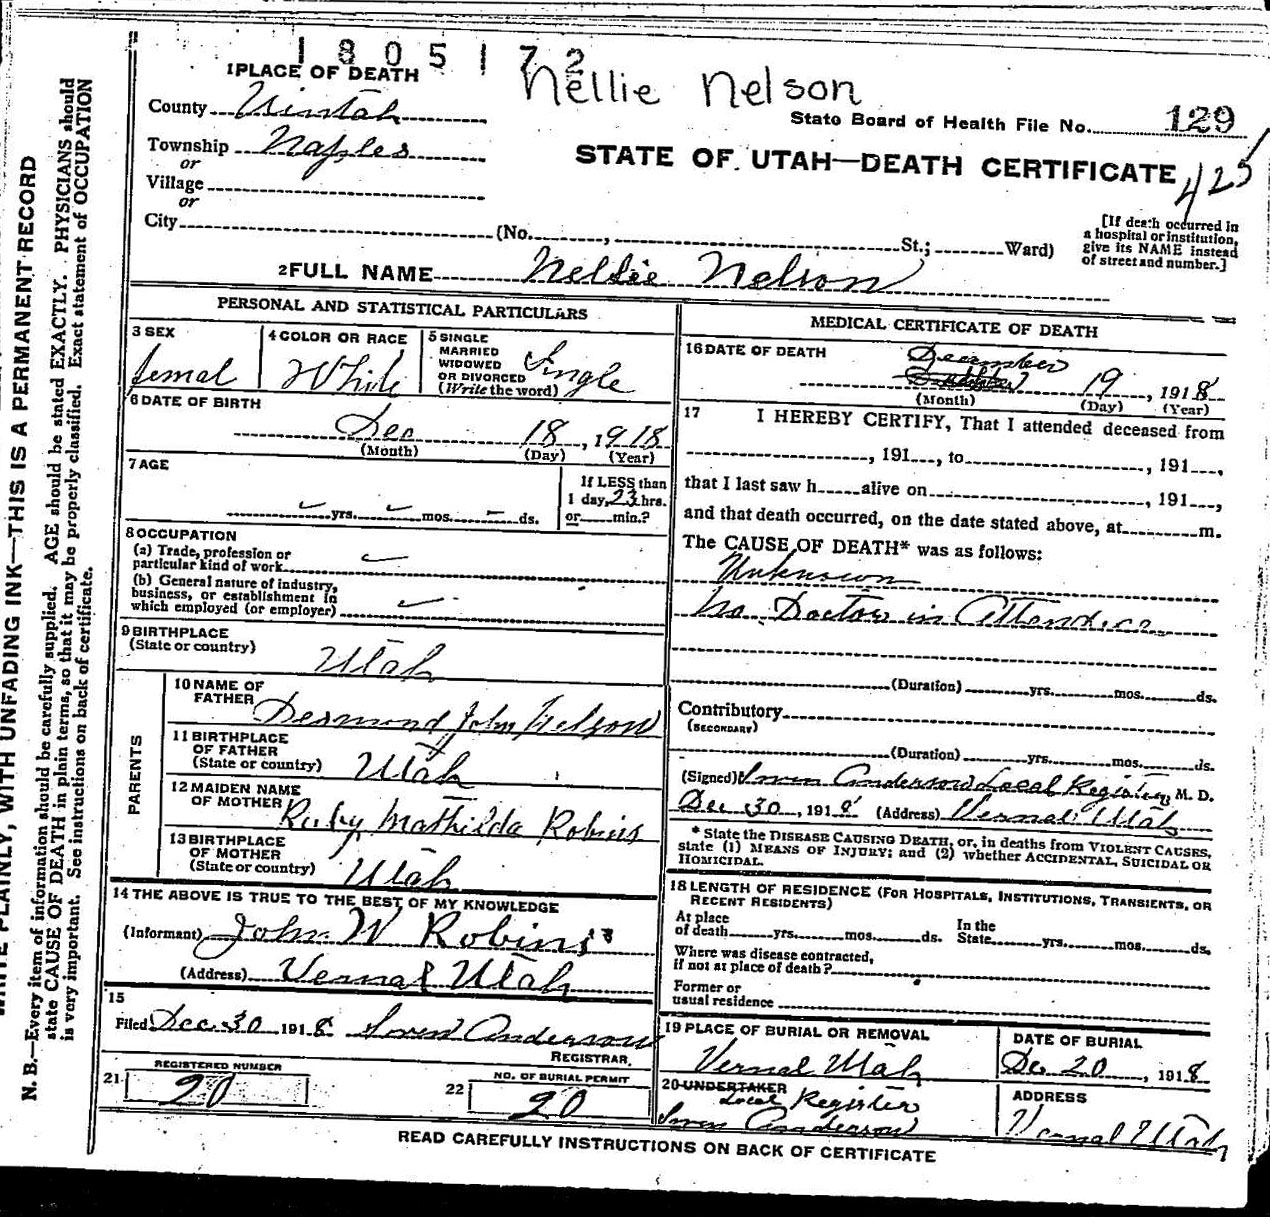 1805172
Nellie Nelson
1 PLACE OF DEATH
County Uintah
State Board of Health File No. 129
Township Naples
or
STATE OF UTAH—DEATH CERTIFICATE
425
Village
or
City (No. , St.; Ward)
[If death occurred in a hospital or institution, give its NAME instead of street and number.]
2 FULL NAME Nellie Nelson
PERSONAL AND STATISTICAL PARTICULARS
3 SEX
femal
4 COLOR OR RACE
White
5 SINGLE
MARRIED
WIDOWED
OR DIVORCED
(Write the word)
Single
6 DATE OF BIRTH
Dec 18, 1918
(Month) (Day) (Year)
7 AGE
yrs. mos. ds.
If LESS than
1 day, 23 hrs.
or min.?
8 OCCUPATION
(a) Trade, profession or
particular kind of work
(b) General nature of industry,
business, or establishment in
which employed (or employer)
9 BIRTHPLACE
(State or country)
Utah
PARENTS
10 NAME OF
FATHER
Desmond John Nelson
11 BIRTHPLACE
OF FATHER
(State or country)
Utah
12 MAIDEN NAME
OF MOTHER
Ruby Mathilda Robins
13 BIRTHPLACE
OF MOTHER
(State or country)
Utah
14 THE ABOVE IS TRUE TO THE BEST OF MY KNOWLEDGE
(Informant) John W Robins
(Address) Vernal Utah
15
Filed Dec 30 1918 Anderson
REGISTRAR.
REGISTERED NUMBER
21 20
NO. OF BURIAL PERMIT
22 20
MEDICAL CERTIFICATE OF DEATH
16 DATE OF DEATH
December
19, 1918
(Month) (Day) (Year)
17 I HEREBY CERTIFY, That I attended deceased from
, 191 , to , 191 ,
that I last saw h alive on , 191 ,
and that death occurred, on the date stated above, at m.
The CAUSE OF DEATH* was as follows:
Unknown
No Doctor in Attendece
(Duration) yrs. mos. ds.
Contributory
(SECONDARY)
(Duration) yrs. mos. ds.
(Signed) Anderson Local Register, M. D.
Dec 30, 1918 (Address) Vernal Utah
* State the DISEASE CAUSING DEATH, or, in deaths from VIOLENT CAUSES,
state (1) MEANS OF INJURY; and (2) whether ACCIDENTAL, SUICIDAL OR
HOMICIDAL.
18 LENGTH OF RESIDENCE (FOR HOSPITALS, INSTITUTIONS, TRANSIENTS, OR
RECENT RESIDENTS)
At place
of death yrs. mos. ds.
In the
State yrs. mos. ds.
Where was disease contracted,
if not at place of death?
Former or
usual residence
19 PLACE OF BURIAL OR REMOVAL
Vernal Utah
DATE OF BURIAL
Dec 20, 1918
20 UNDERTAKER
Local Register
Anderson
ADDRESS
Vernal Utah
READ CAREFULLY INSTRUCTIONS ON BACK OF CERTIFICATE
WRITE PLAINLY, WITH UNFADING INK—THIS IS A PERMANENT RECORD
N. B.—Every item of information should be carefully supplied. AGE should be stated EXACTLY. PHYSICIANS should
state CAUSE OF DEATH in plain terms, so that it may be properly classified. Exact statement of OCCUPATION
is very important. See instructions on back of certificate.